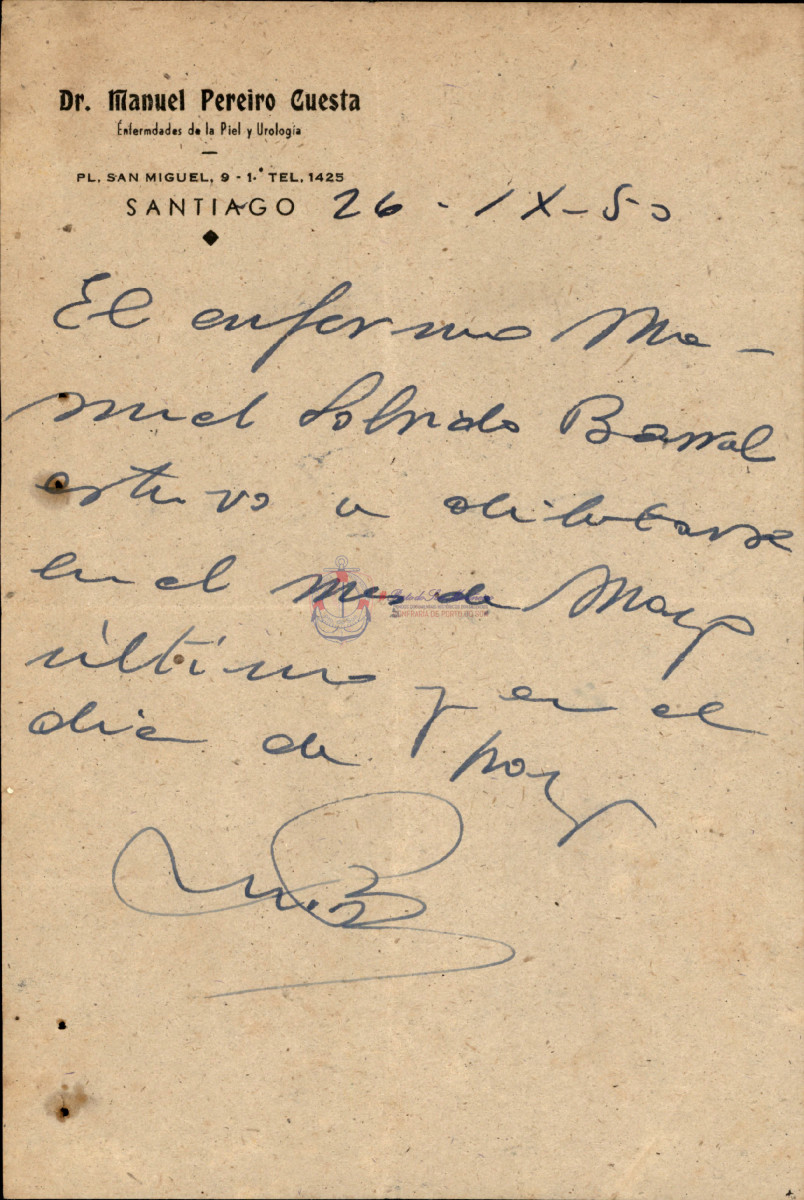 Dr. Manuel Pereiro Cuesta
Enfermdades de la Piel y Urología
PL. SAN MIGUEL, 9 - 1.° TEL. 1425
SANTIAGO 26 - IX - 50
El enfermo Ma-
nuel Sobrido Barral
estuvo a dilatarse
en el mes de Mayo
último y en el
dia de hoy
CONFRARÍA DE PORTO DO SON